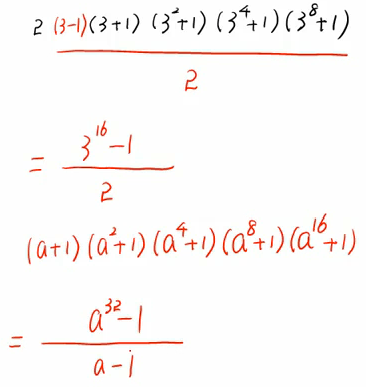 2 (3-1)(3+1)(3²+1)(3⁴+1)(3⁸+1)
2
= 3¹⁶-1
2
(a+1)(a²+1)(a⁴+1)(a⁸+1)(a¹⁶+1)
= a³²-1
a-1